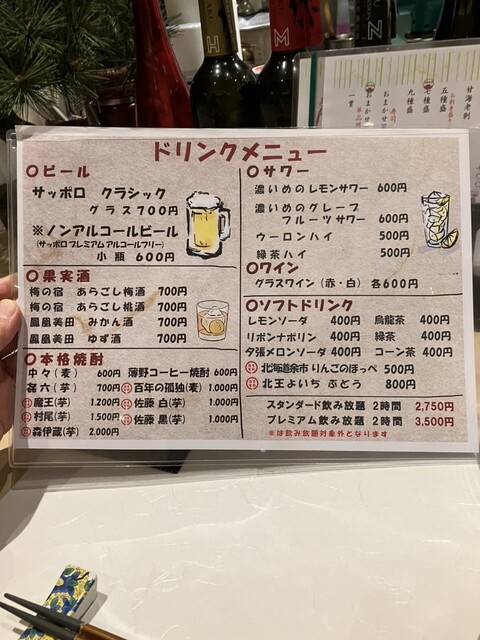 ドリンクメニュー
〇ビール
サッポロ クラシック
グラス700円
※ノンアルコールビール
(サッポロプレミアムアルコールフリー)
小瓶 600円
〇果実酒
梅の宿 あらごし梅酒 700円
梅の宿 あらごし桃酒 700円
鳳凰美田 みかん酒 700円
鳳凰美田 ゆず酒 700円
〇本格焼酎
中々(麦) 600円 薄野コーヒー焼酎 600円
㐂六(芋) 700円 百年の孤独(麦) 1.000円
魔王(芋) 1.200円 佐藤 白(芋) 1.000円
村尾(芋) 1.500円 佐藤 黒(芋) 1.000円
森伊蔵(芋) 2.000円
〇サワー
濃いめのレモンサワー 600円
濃いめのグレープ
フルーツサワー 600円
ウーロンハイ 500円
緑茶ハイ 500円
〇ワイン
グラスワイン(赤・白) 各600円
〇ソフトドリンク
レモンソーダ 400円 烏龍茶 400円
リボンナポリン 400円 緑茶 400円
夕張メロンソーダ 400円 コーン茶 400円
北海道余市 りんごのほっぺ 500円
北王よいち ぶどう 800円
スタンダード飲み放題 2時間 2,750円
プレミアム飲み放題 2時間 3,500円
※は飲み放題対象外となります
H
M
N
五種盛
七種盛
九種盛
おまかせ
一貫